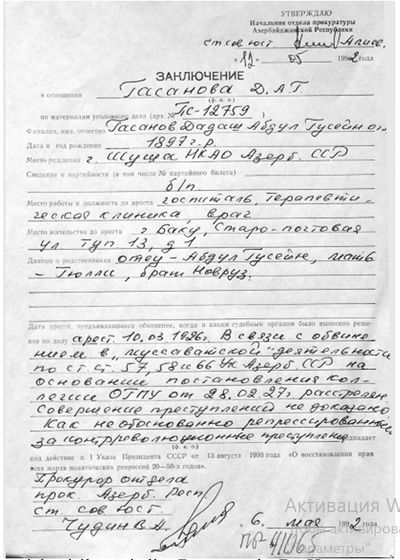 УТВЕРЖДАЮ
Начальник отдела прокуратуры
Азербайджанской Республики
ст сов юст Алиев
«12» 05 1992 года
ЗАКЛЮЧЕНИЕ
в отношении Гасанова Д.А.Г.
(ф. и. о.)
по материалам уголовного дела (арх. № ПС-12759
Фамилия, имя, отчество Гасанов Дадаш Абдул Гусейн оглы
Дата и год рождения 1897 г.р.
Место рождения г. Шуша НКАО Азерб. ССР
Сведения о партийности (в том числе № партийного билета)
б/п
Место работы и должность до ареста госпиталь, терапевти-
ческая клиника, врач
Место жительства до ареста г. Баку, Старо-почтовая
ул. туп 13, д. 1
Данные о родственниках отец – Абдул Гусейн, мать
– Гюлли, брат Новруз.
Дата ареста, предъявлявшееся обвинение, когда и каким судебным органом было вынесено реше-
ние по делу арест. 10.03.1926г. В связи с обвине-
нием в „муссаватской" деятельности
по ст.ст. 57, 58 и 66 УК Азерб. ССР на
основании постановления кол-
легии ОГПУ от 28.02.27г. расстрелен
Совершение преступлений не доказано
Как необоснованно репрессированный
за контрреволюционное преступление подпадает
под действие п. 1 Указа Президента СССР от 13 августа 1990 года «О восстановлении прав
всех жертв политических репрессий 20—50-х годов».
Прокурор отдела
прок Азерб. Респ.
ст. сов юст.
Чудинов А.
6. мая 1992 года
Активация W